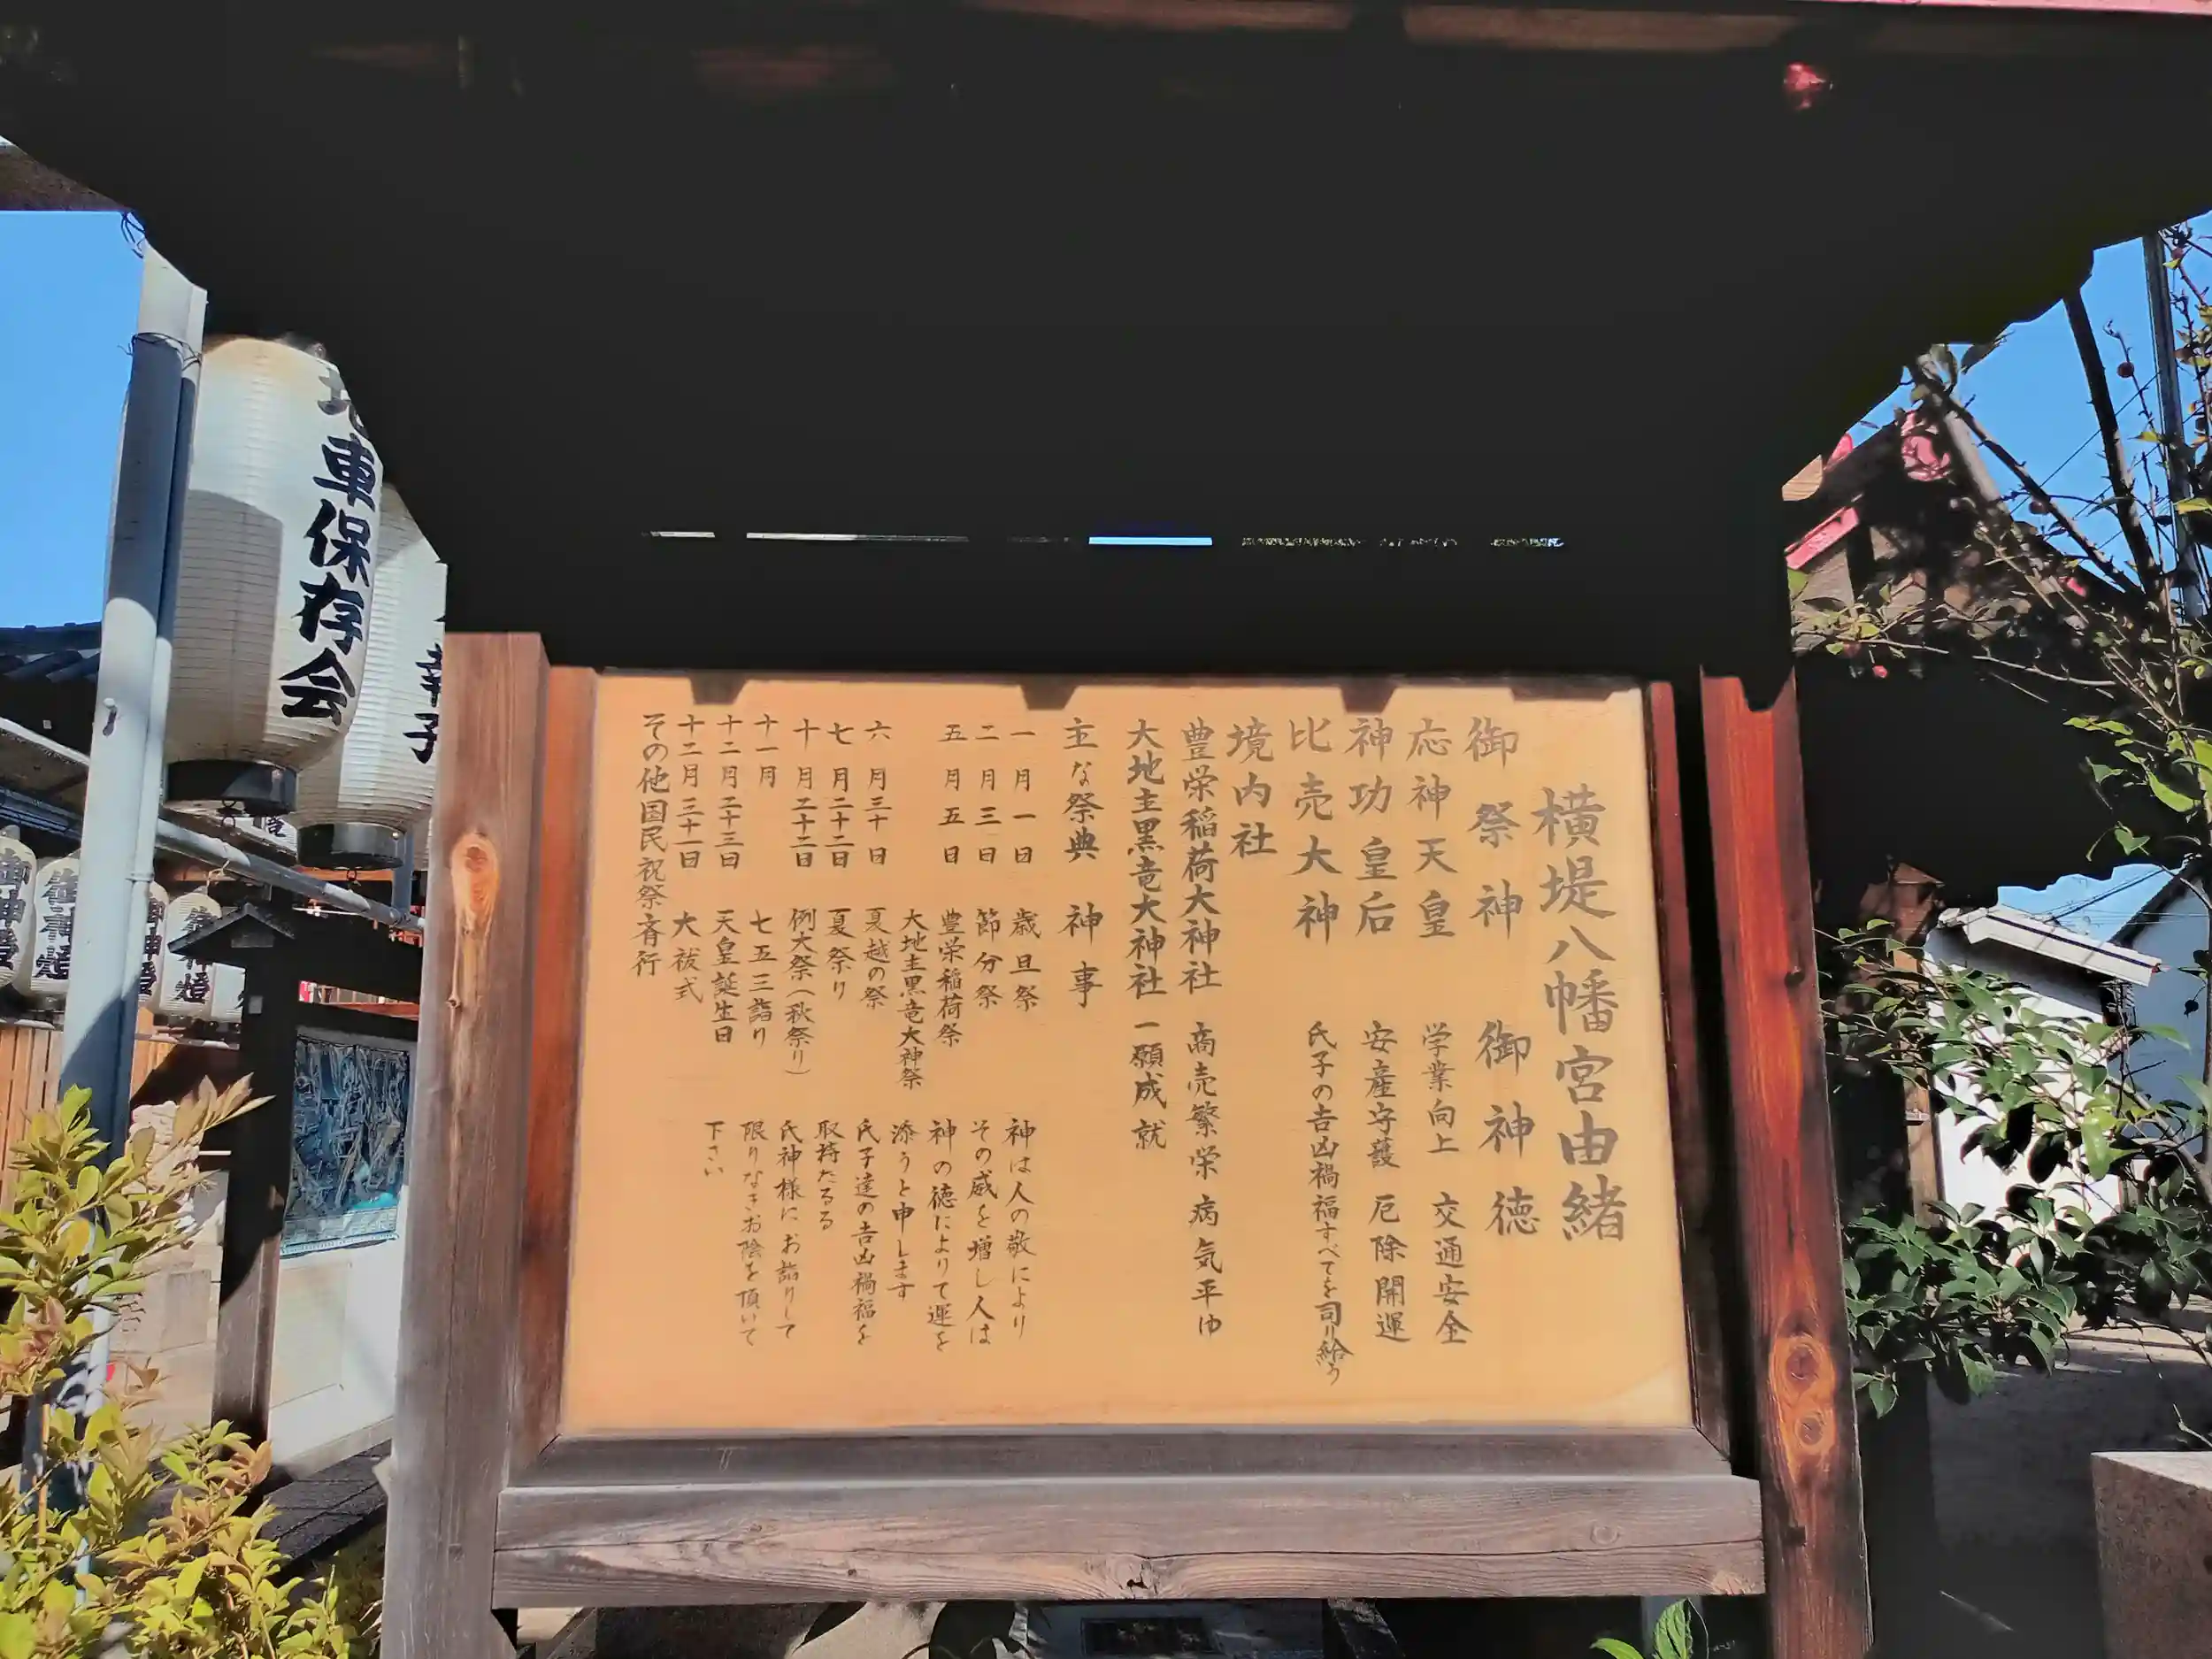 横堤八幡宮由緒
御祭神 御神徳
応神天皇 学業向上 交通安全
神功皇后 安産守護 厄除開運
比売大神 氏子の吉凶禍福すべてを司り給う
境内社
豊栄稲荷大神社 商売繁栄 病気平ゆ
大地主黒竜大神社 一願成就
主な祭典 神事
一月一日 歳旦祭
二月三日 節分祭
五月五日 豊栄稲荷祭
大地主黒竜大神祭
六月三十日 夏越の祭
七月二十二日 夏祭り
十月二十二日 例大祭(秋祭り)
十一月 七五三詣り
十二月二十三日 天皇誕生日
十二月三十一日 大祓式
その他国民祝祭斉行
神は人の敬により
その威を増し人は
神の徳によりて運を
添うと申します
氏子達の吉凶禍福を
取持たるる
氏神様にお詣りして
限りなきお陰を頂いて
下さい
車保存会
御神燈
御神燈
御神燈